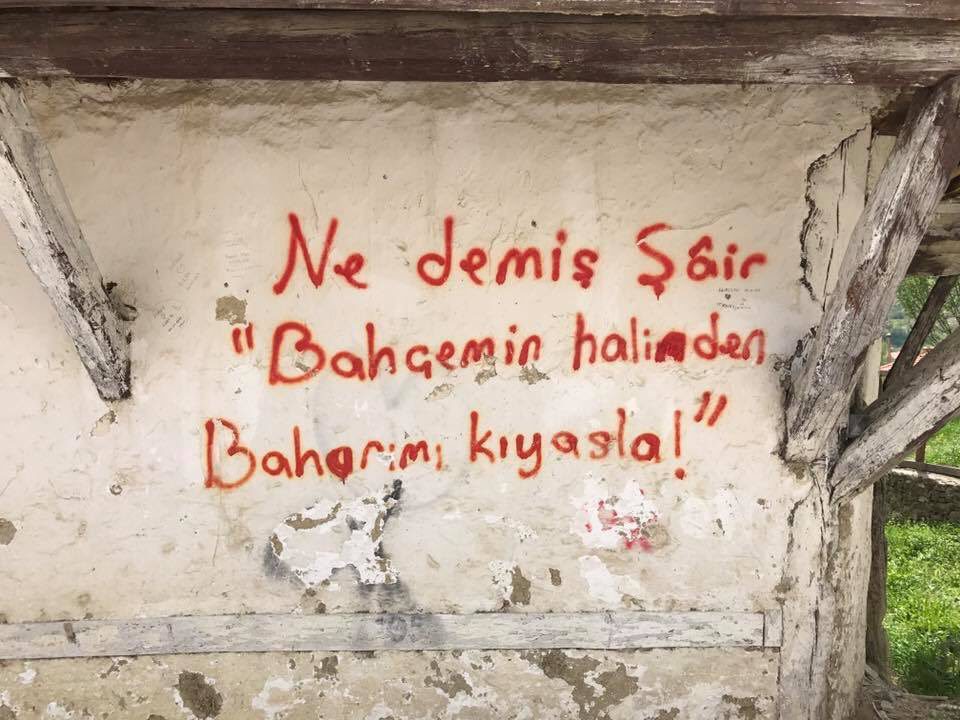 Ne demiş Şâir
"Bahçemin halinden
Baharımı kıyasla!"